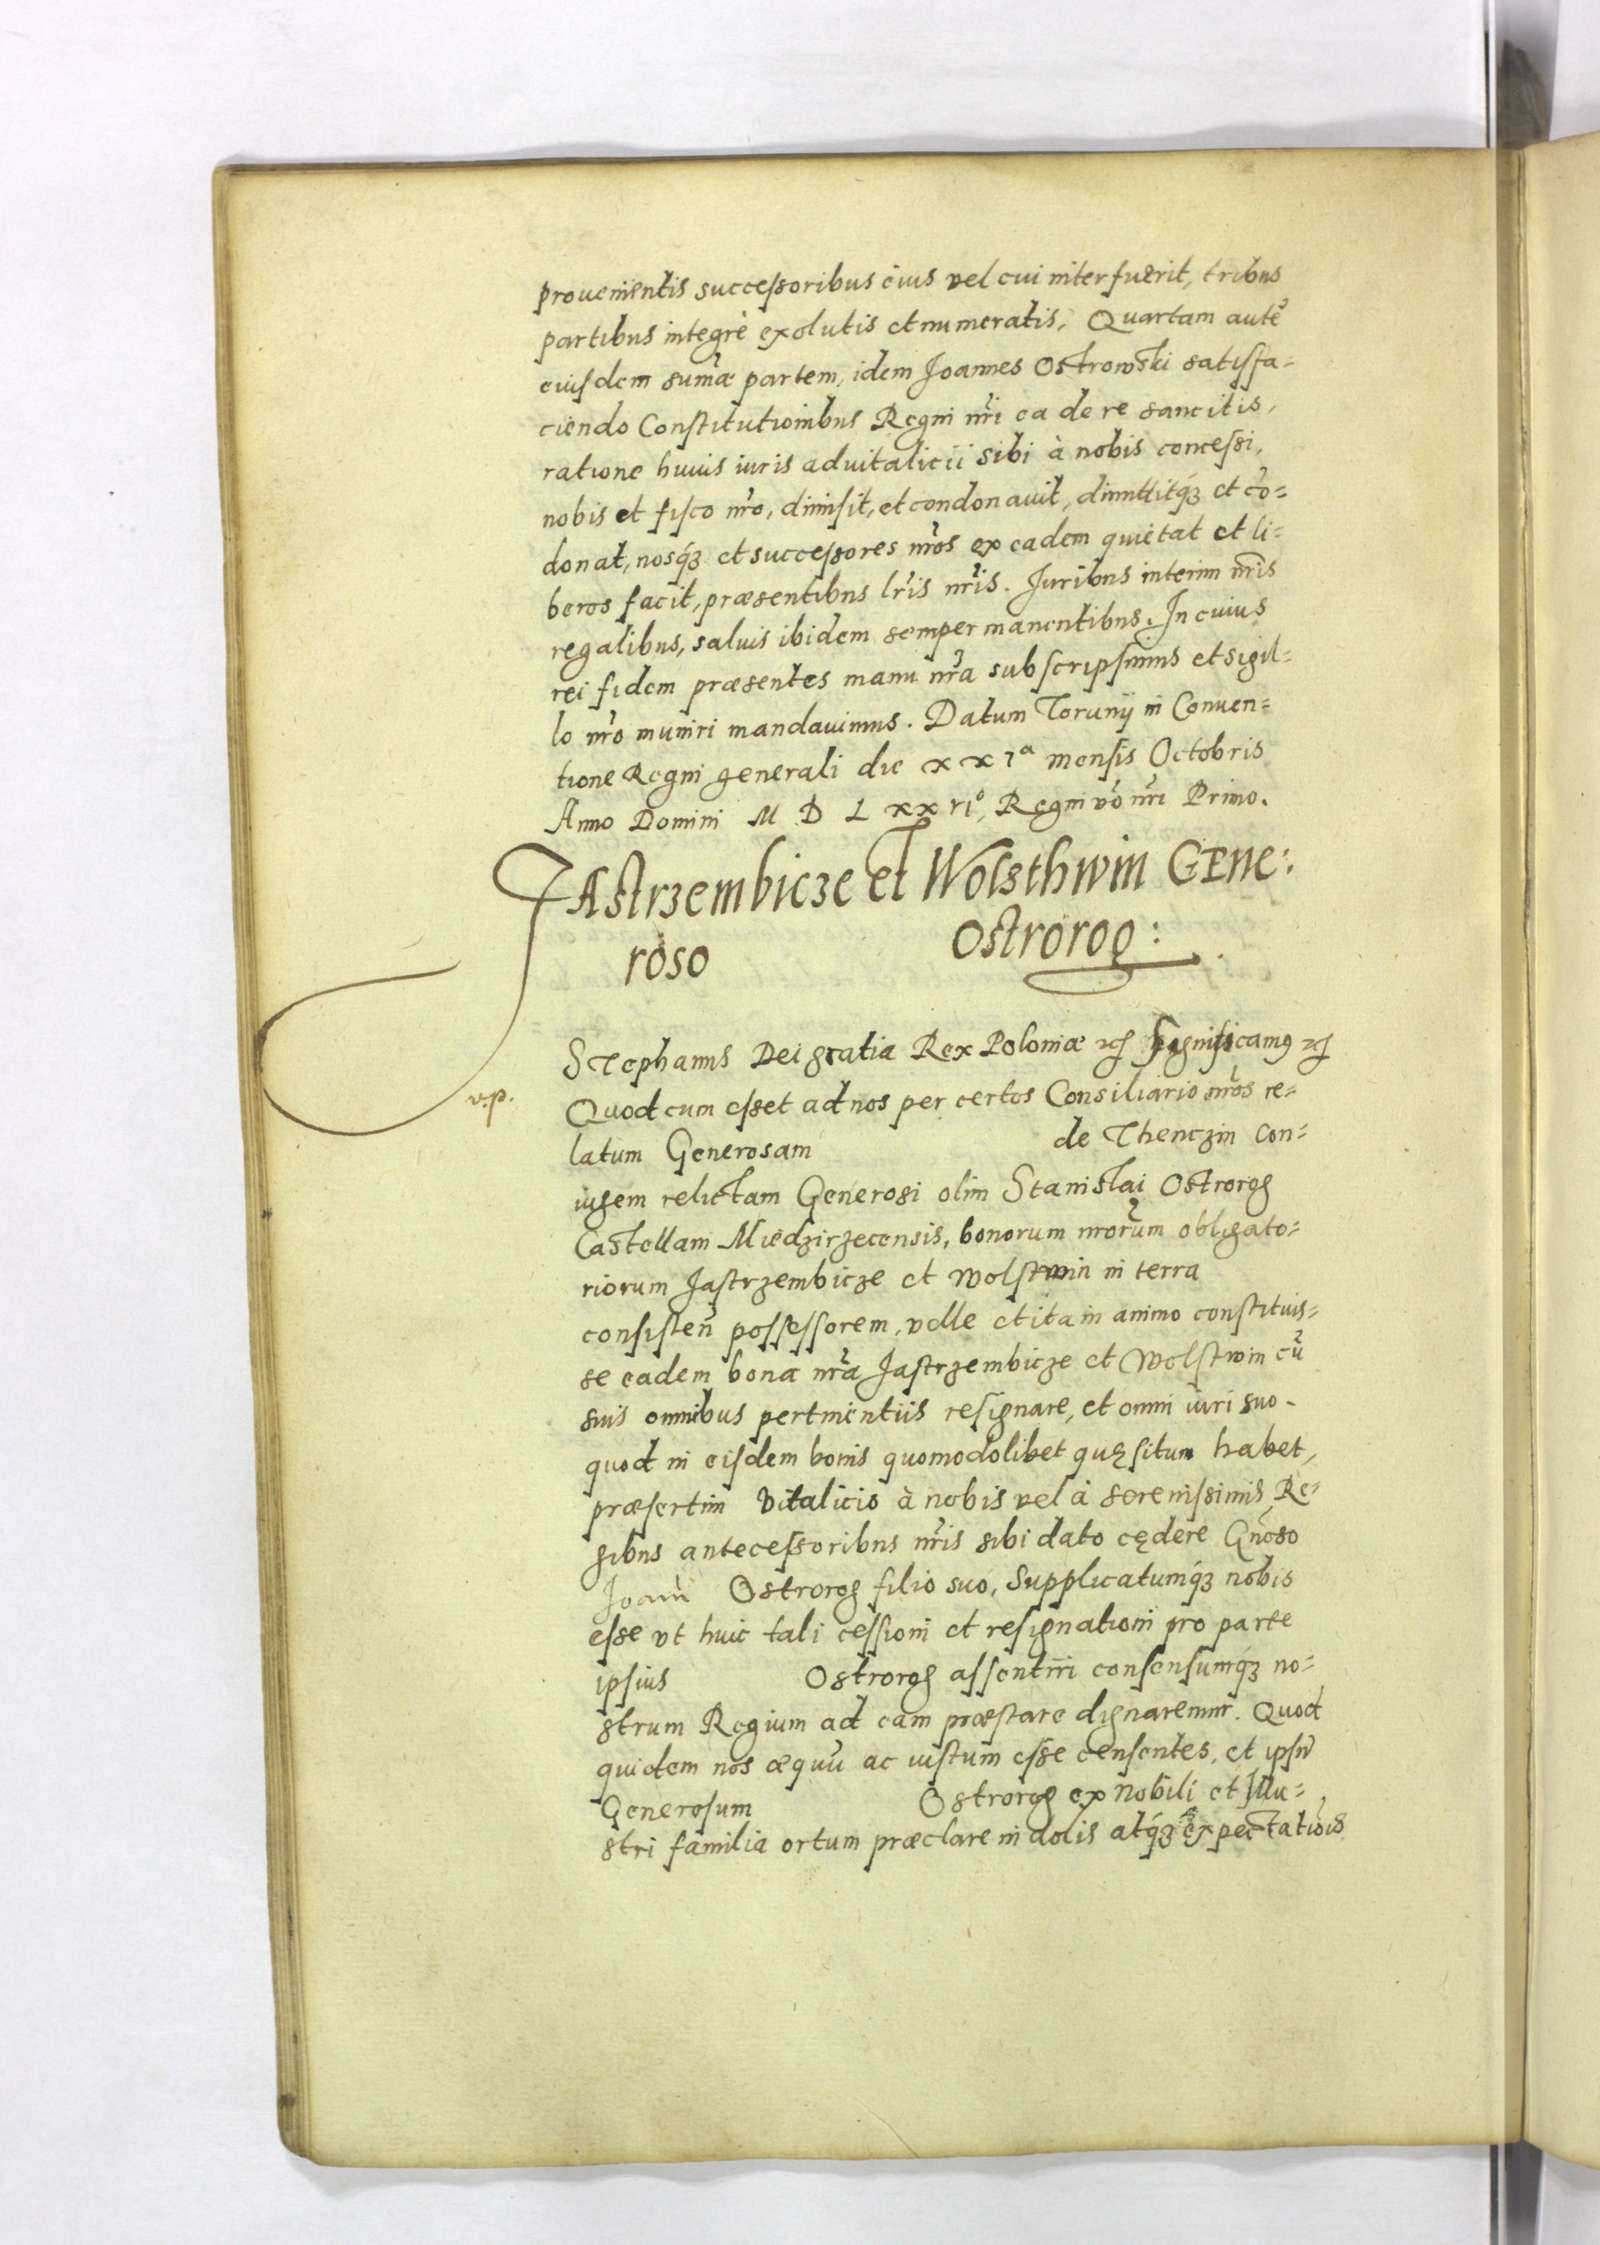 prouenientis successoribus eius vel cui interfuerit, tribus
partibus integrè exolutis et numeratis, Quartam autē
eiusdem sum̃æ partem, idem Joannes Ostrowski satisfa=
ciendo Constitutionibus Regni nr̃i ea de re sancitis,
ratione huius iuris aduitalicii sibi à nobis concessi,
nobis et fisco nr̃o, dimisit, et condonauit, dimittitq́ꝫ et cō=
donat, nosq́ꝫ et successores nr̃os ex eadem quietat et li=
beros facit, præsentibus lr̃is nr̃is. Juribus interim nr̃is
regalibus, saluis ibidem semper manentibus. In cuius
rei fidem præsentes manu nr̃a subscripsimus et sigil=
lo nr̃o muniri mandauimus. Datum Torunij in Conuen=
tione Regni generali die XXIᵃ mensis Octobris
Anno Domini M D L XXVI°, Regni vō nr̃i Primo.
JAstrzembicze et Wolsthwin GEne:
roso Ostrorog:
v.p.
STephanus Dei gratia Rex Poloniæ ꝛc̃ Significamꝰ ꝛc̃
Quod cum esset ad nos per certos Consiliario nr̃os re=
latum Generosam de Thenczin Con=
iugem relictam Generosi olim Stanislai Ostrorog
Castellani Miedzirzecensis, bonorum nrõrum obligato=
riorum Jastrzembicze et Wolstwin in terra
consisteñ possessorem, velle et ita in animo constituis=
se eadem bona nr̃a Jastrzembicze et Wolstwin cū
suis omnibus pertinentiis resignare, et omni iuri suo
quod in eisdem bonis quomodolibet quęsitum habet,
præsertim Vitalicio à nobis vel à serenissimis Re=
gibus antecessoribus nr̃is sibi dato cędere Gñoso
Joañi Ostrorog filio suo, Supplicatumq́ꝫ nobis
esse vt huic tali cessioni et resignationi pro parte
ipsius Ostrorog assentiri consensumq́ꝫ no=
strum Regium ad eam præstare dignaremur. Quod
quidem nos æquū ac iustum esse censentes, et ipsū
Generosum Ostrorog ex Nobili et Illu=
stri familia ortum præclare indolis atq́ꝫ expectatiõis